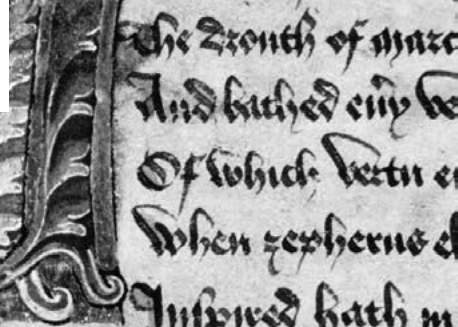 The drouth of marc
And bathed eũy ve
Of which vertu e
When zepherus e
Inspired hath